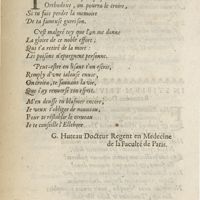 Orthodoxe, on pourra le croire,
Si tu fais perdre la memoire
De ta fameuse guerison.
C'est malgré toy que l'on me donne
La gloire de ce noble effort;
Qui t'a retiré de la mort:
Les poisons n'épargnent personne.
Peut-estre en lisant t'un esprit,
Remply d'une vaine
On croira, te sauvant la vie,
Que j'ay renversé ton esprit.
M'en deusse tu blasmer encore,
Je veux t'obliger de nouveau,
Pour te restablir le cerveau
Je te conseille l'Ellebore.
G. Huteau Docteur Regent en Medecine
de la Faculté de Paris.